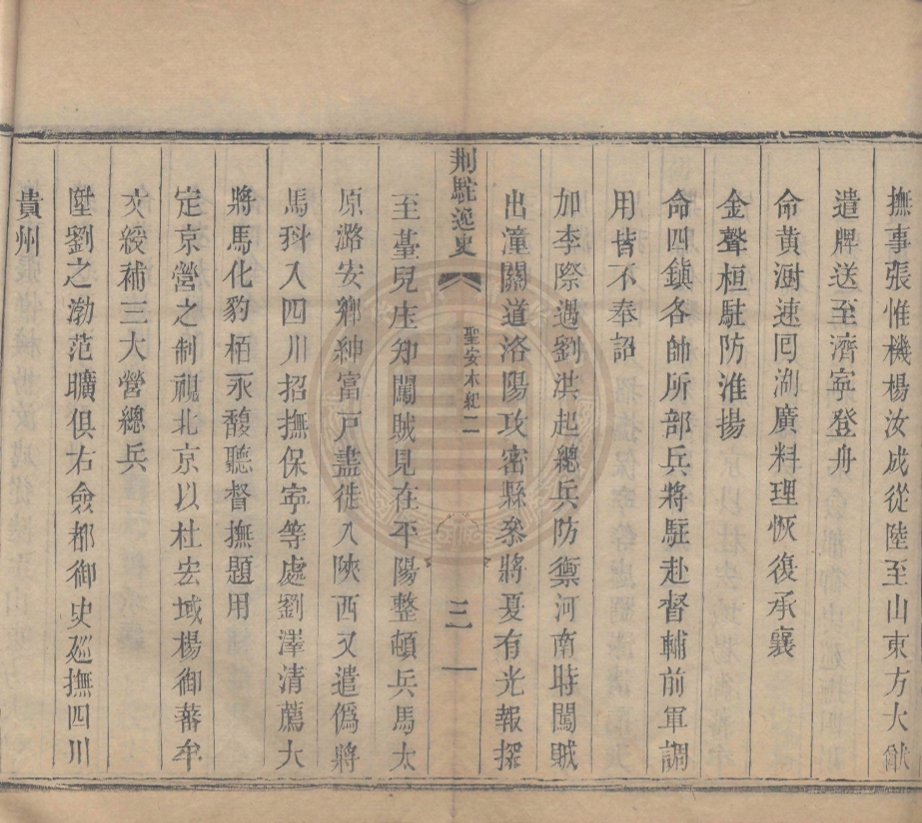 撫事張惟機楊汝成從陸至山東方大猷
遣牌送至濟寧登舟
命黃澍速囘湖廣料理恢復承襄
金聲桓駐防淮揚
命四鎮各帥所部兵將駐赴督輔前軍調
用皆不奉詔
加李際遇劉洪起總兵防禦河南時闖賊
出潼關道洛陽攻密縣叅將夏有光報探
荆駝逸史
聖安本紀二
三一
至臺兒庄知闖賊見在平陽整頓兵馬太
原潞安鄉紳富戶盡徙入陝西又遣僞將
馬科入四川招撫保寧等處劉澤清薦大
將馬化豹栢永馥聽督撫題用
定京營之制視北京以杜宏域楊御蕃牟
文綬補三大營總兵
陞劉之渤范曠俱右僉都御史廵撫四川
貴州